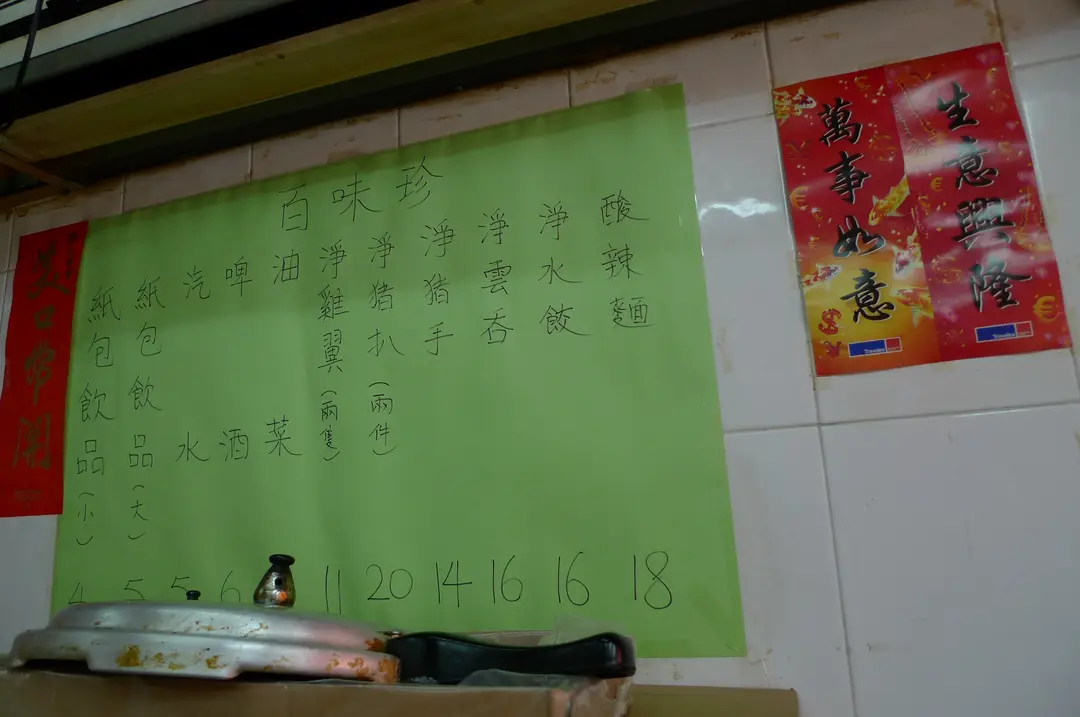 生意興隆
萬事如意
百味珍
酸辣麵 18
淨水餃 16
淨雲吞 16
淨猪手 14
淨猪扒（兩件） 20
淨雞翼（兩隻） 11
油菜
啤酒 6
汽水 5
紙包飲品（大） 5
紙包飲品（小） 4
笑口常開